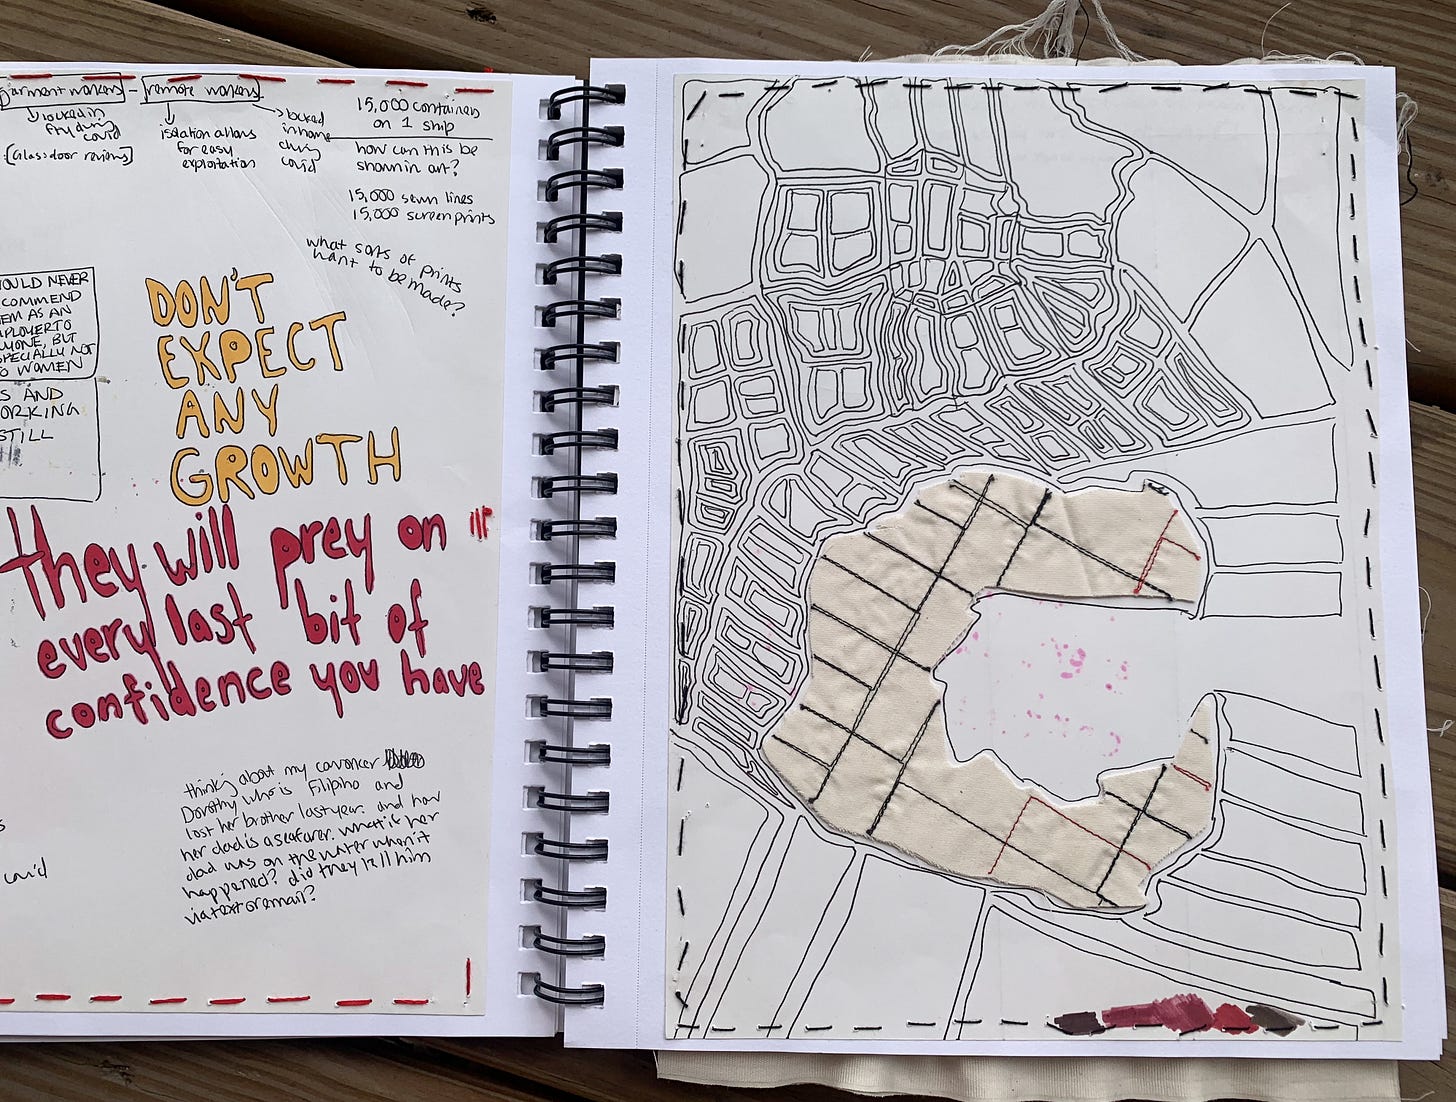 garment workers - remote workers
locked in
during
covid
[Glassdoor reviews]
isolation allows
for easy
exploitation
locked
in home
during
covid
15,000 containers
on 1 ship
how can this be
shown in art?
15,000 sewn lines
15,000 screenprints
what sorts of prints
want to be made?
OULD NEVER
COMMEND
EM AS AN
MPLOYER TO
YONE, BUT
SPECIALLY NOT
O WOMEN
S AND
ORKING
STILL
DON'T
EXPECT
ANY
GROWTH
they will prey on
every last bit of
confidence you have
thinking about my coworker
Dorothy who is Filipino and
lost her brother last year. and how
her dad is a seafarer. what if her
dad was on the water when it
happened? did they tell him
via text or email?